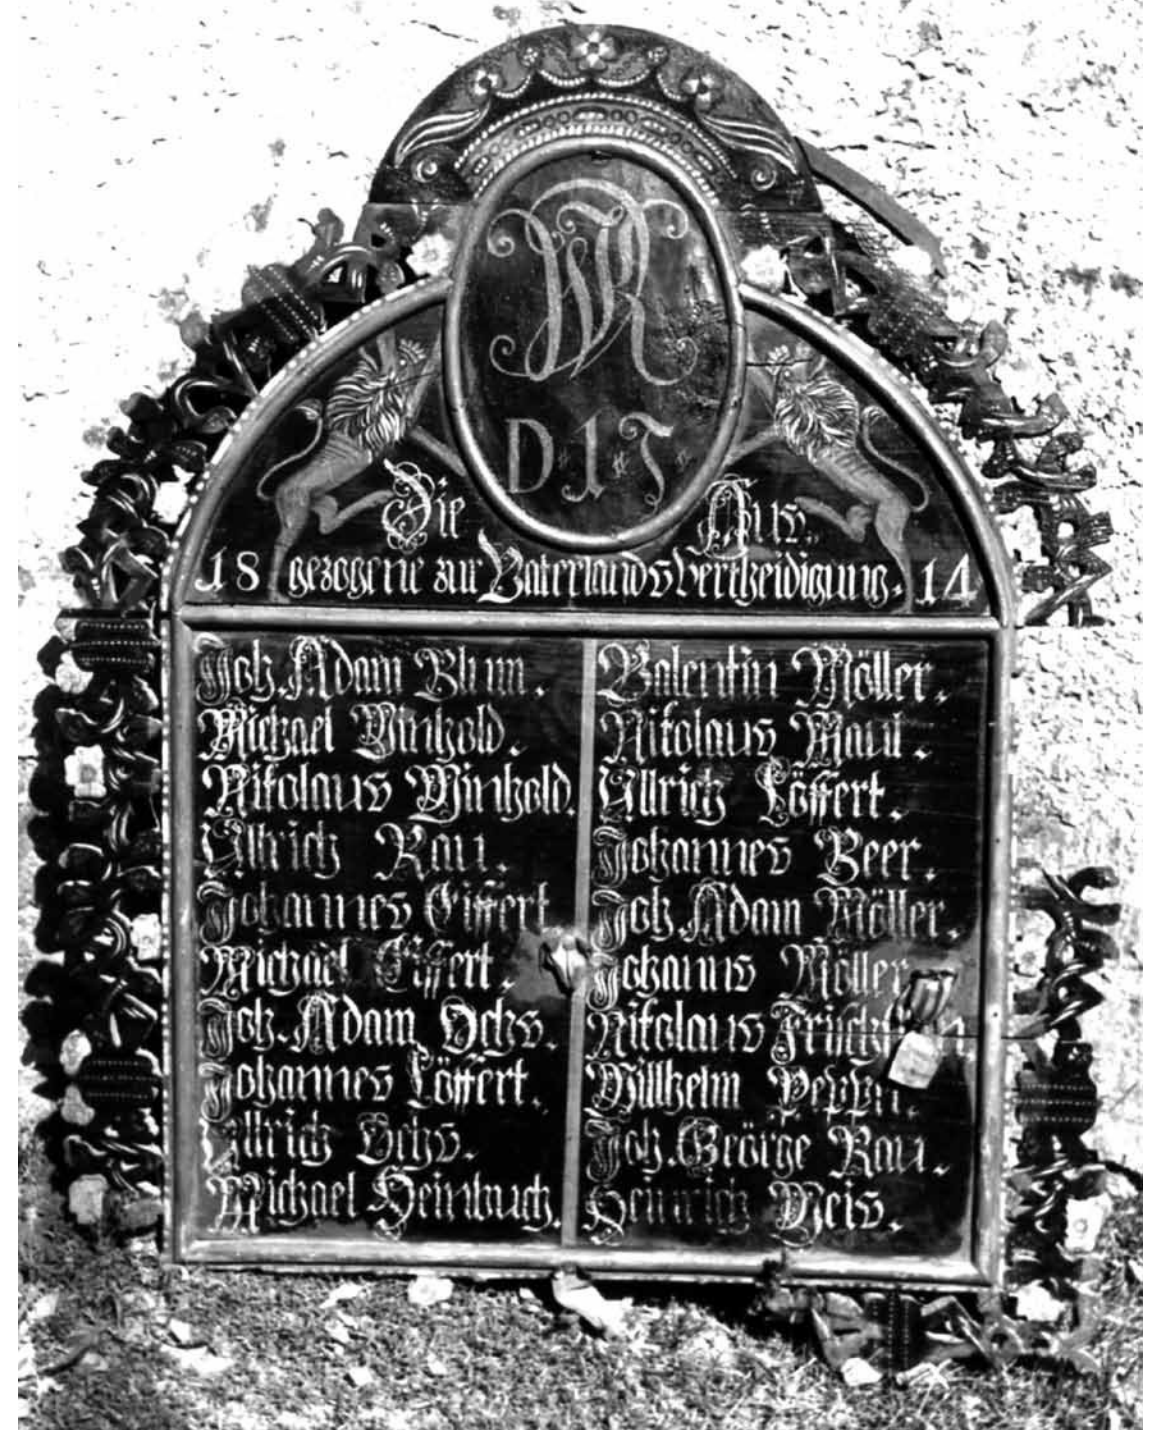 WR
D. 1. T.
Die Aus
18 gezogene zur Vaterlands Vertheidigung. 14
Joh. Adam Blum.
Michael Winhold.
Nikolaus Winhold.
Ullrich Rau.
Johannes Eiffert
Michael Eiffert.
Joh. Adam Ochs.
Johannes Löffert.
Ullrich Ochs.
Michael Heinbuch.
Valentin Möller.
Nikolaus Maul.
Ullrich Löffert.
Johannes Beer.
Joh. Adam Möller.
Johanns Möller
Nikolaus
Willhelm
Joh. Geörge Rau.
Heinrich Weis.